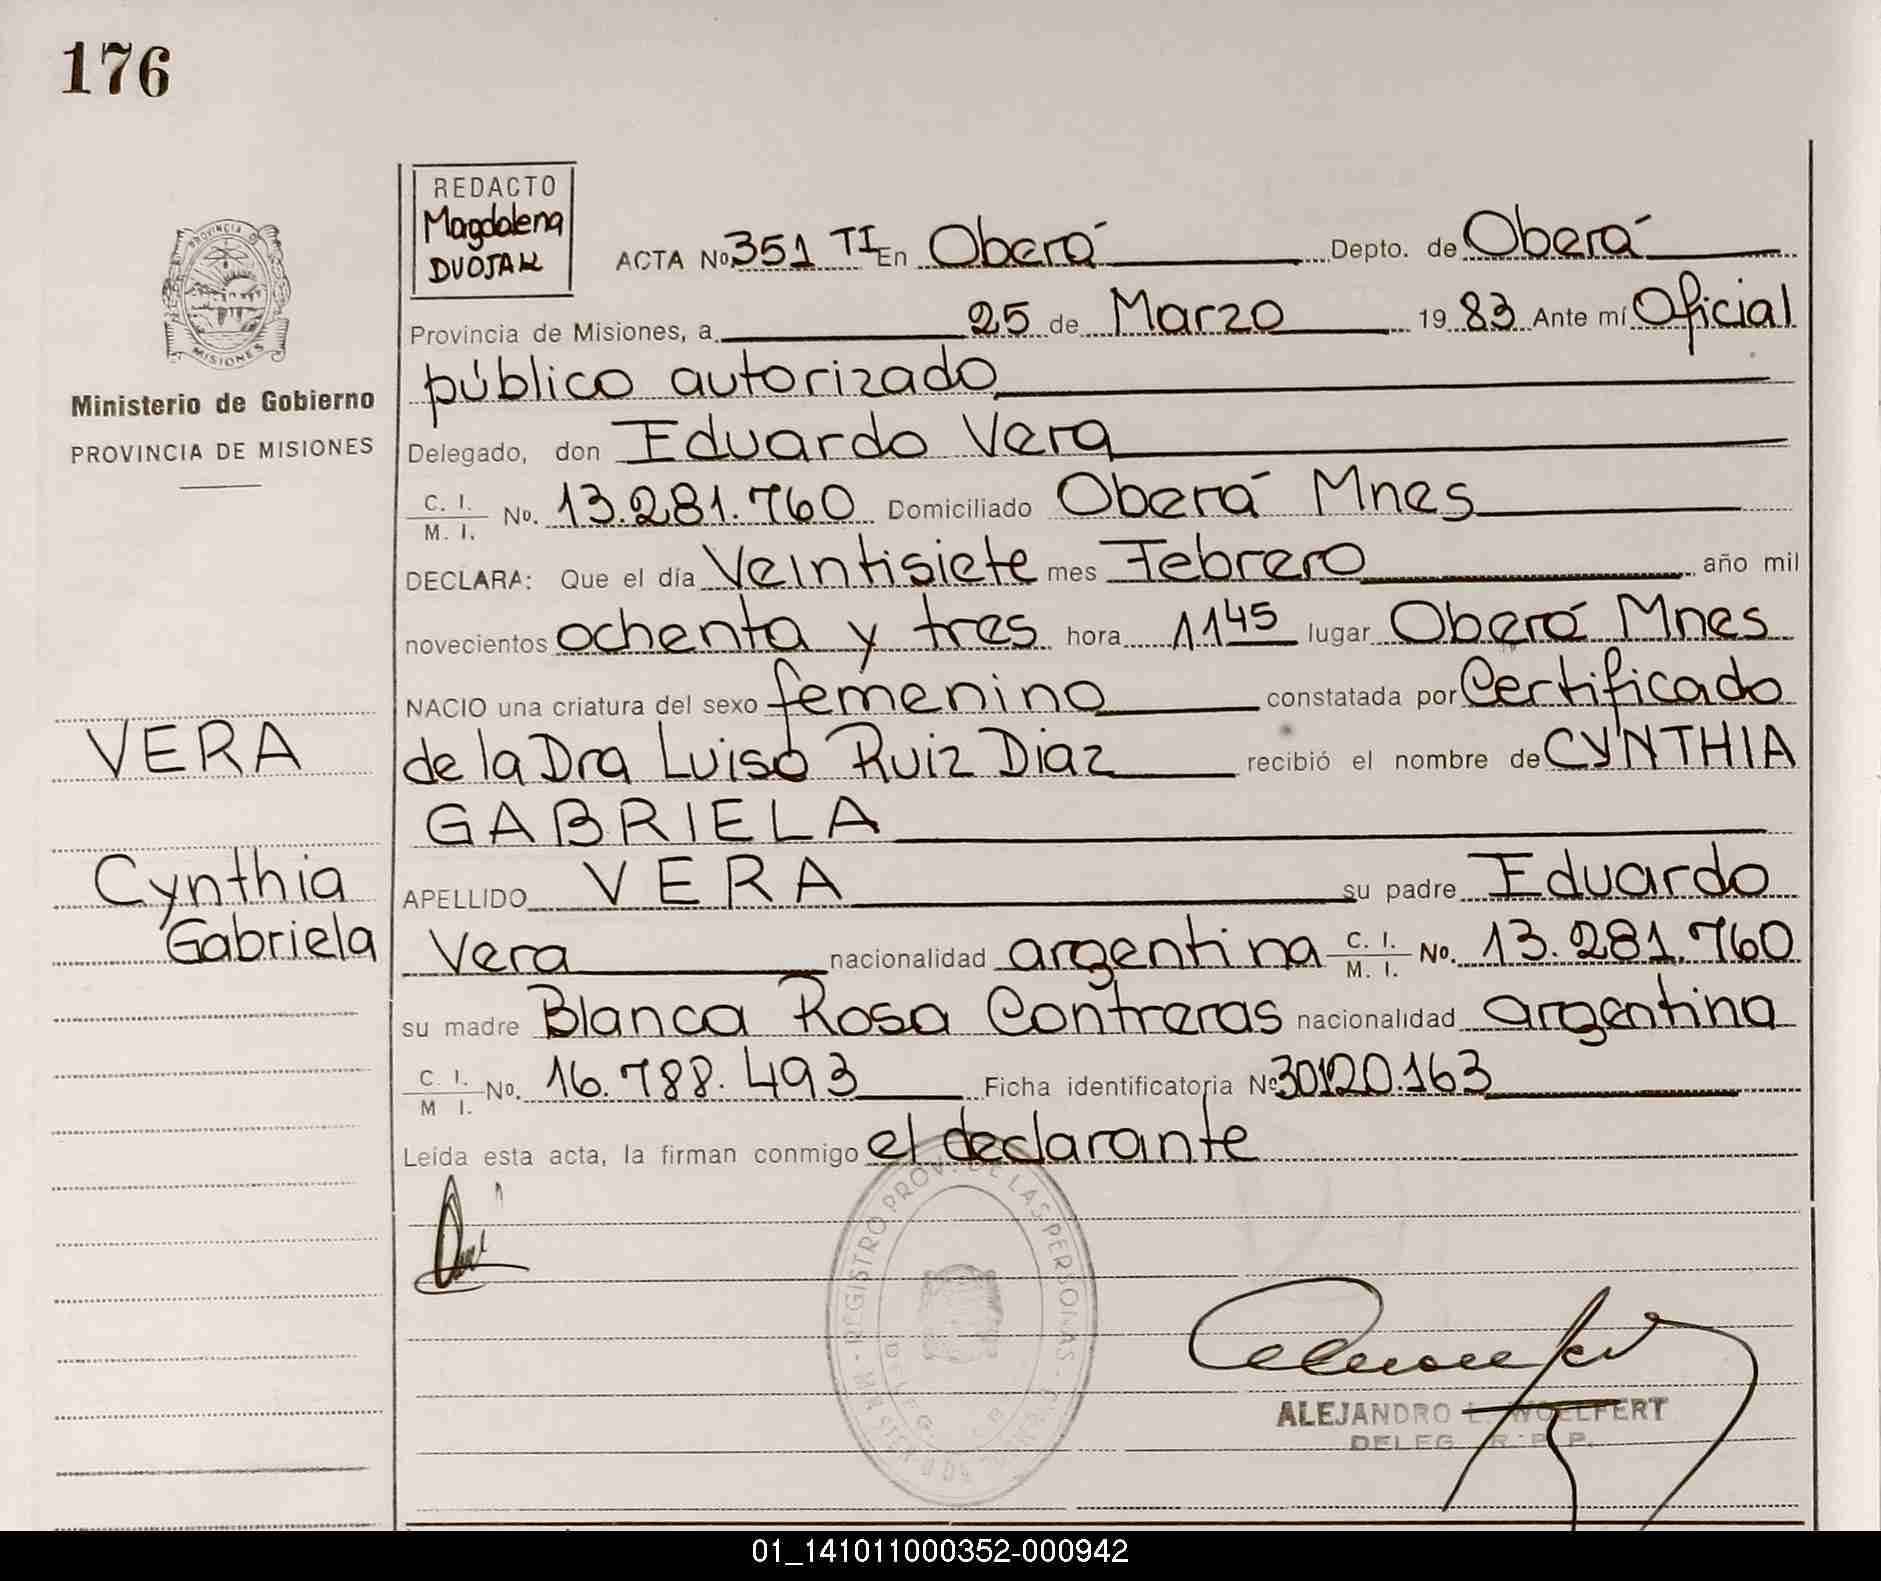 176
REDACTO
Magdalena
DUOJAK
PROVINCIA DE
MISIONES
Ministerio de Gobierno
PROVINCIA DE MISIONES
ACTA No. 351 TI En Oberá Depto. de Oberá
Provincia de Misiones, a 25 de Marzo 19 83 Ante mí Oficial
público autorizado
Delegado, don Eduardo Vera
C. I.
M. I. No. 13.281.760 Domiciliado Oberá Mnes
DECLARA: Que el día Veintisiete mes Febrero año mil
novecientos ochenta y tres hora 11 45 lugar Oberá Mnes
NACIO una criatura del sexo femenino constatada por Certificado
de la Dra Luisa Ruiz Diaz recibió el nombre de CYNTHIA
GABRIELA
APELLIDO VERA su padre Eduardo
Vera nacionalidad argentina C. I. M. I. No. 13.281.760
su madre Blanca Rosa Contreras nacionalidad argentina
C. I.
M I. No. 16.788.493 Ficha identificatoria No 30120.163
Leída esta acta, la firman conmigo el declarante
VERA
Cynthia
Gabriela
REGISTRO PROV. DE LAS PERSONAS
ALEJANDRO L. WOELFERT
DELEG. R. P. P.
01_141011000352-000942